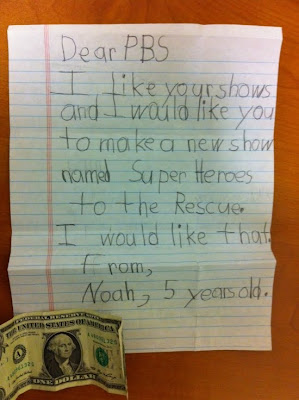 Dear PBS
I like your shows
and I would like you
to make a new show
named Super Heroes
to the Rescue.
I would like that.
From,
Noah, 5 years old.
FEDERAL RESERVE NOTE
THE UNITED STATES OF AMERICA
ONE DOLLAR